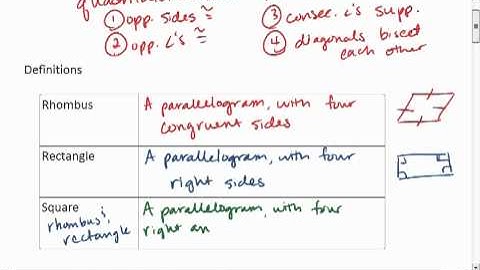 ① opp. sides ≅ ③ consec. ∠'s supp.
② opp. ∠'s ≅ ④ diagonals bisect
each other
Definitions
Rhombus A parallelogram, with four
congruent sides
Rectangle A parallelogram, with four
right sides
Square A parallelogram, with four
rhombus & right an
rectangle